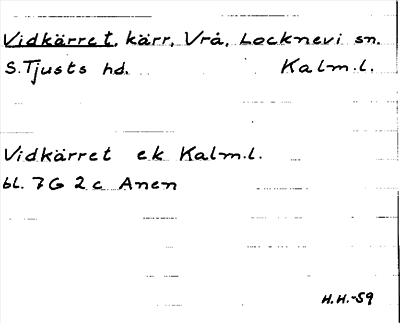 Vidkärret, kärr, Vrå, Locknevi sn.
S. Tjusts hd. Kalm. l.
Vidkärret ek Kalm. l.
bl. 7G 2c Anen
H.H.-59